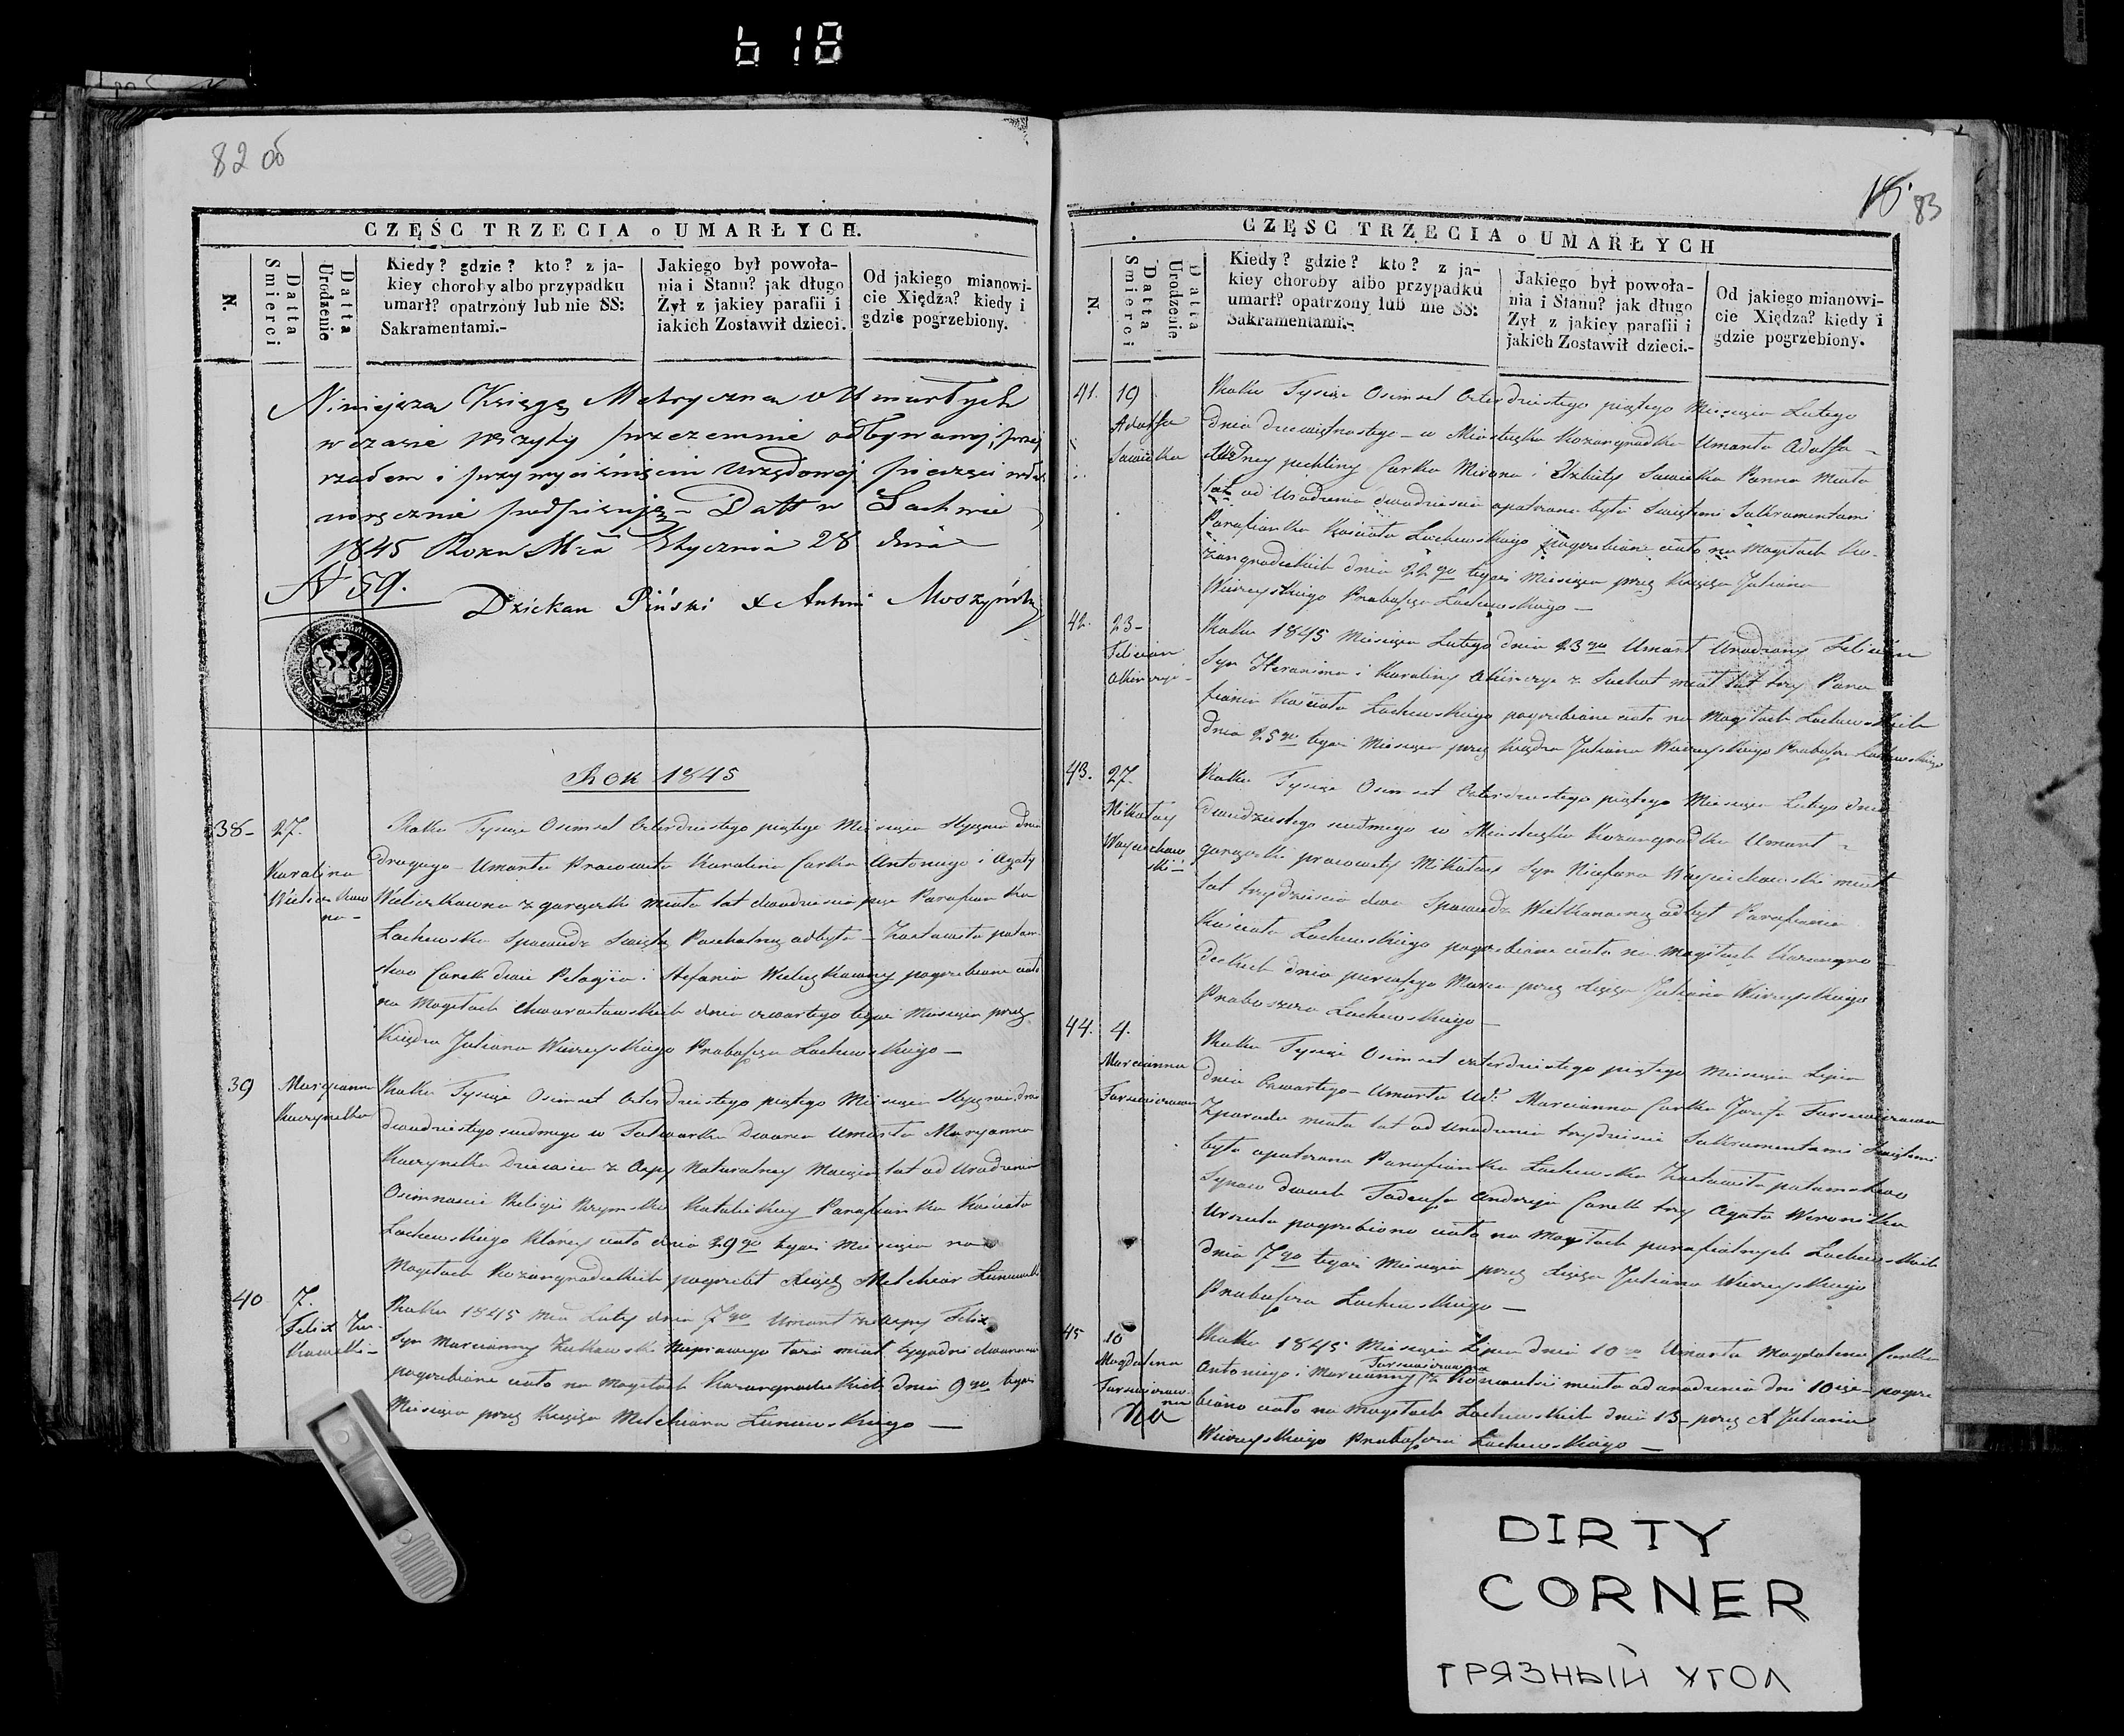 b 18
82 об
CZĘŚC TRZECIA o UMARŁYCH.
N.
Datta Smierci
Datta Urodzenie
Kiedy? gdzie? kto? z ja-
kiey choroby albo przypadku
umarł? opatrzony lub nie SS:
Sakramentami.-
Jakiego był powoła-
nia i Stanu? jak długo
Żył z jakiey parafii i
iakich Zostawił dzieci.
Od jakiego mianowi-
cie Xiędza? kiedy i
gdzie pogrzebiony.
Niniejsza Księgę Metryczna o Umarłych
w czasie wizyty przezemnie odbywanej, przej
rzałem i przy wyciśnięciu Urzędowej pieczęci włas
noręcznie podpisuję - Datt w Lachwie
1845 Roku Mca Stycznia 28 dnia
N 59.
Dziekan Piński X Antoni Moszyński
Rok 1845
38- 27.
Karolina
Roku Tysiąc Osimset Czterdziestego piątego Miesiąca Stycznia dnia
drugiego - Umarła Pracowita Karolina Corka Antoniego i Agaty
z gorączki miała lat dwadzieścia pięć Parafian Ko
Lachewska Spowiedz Swiętą Paschalną odbyła - Zostawiła potom-
stwo Corek dwie Pelagija i Stefania pogrzebione ciało
na Mogiłach dnia czwartego tegoż Miesiąca przez
Księdza Juliana Probosza Lachewskiego -
39 Maryanna
Kaczynska
Roku Tysiąc Osimset Czterdziestego piątego Miesiąca Stycznia dnia
dwudziestego siedmego w Folwarku Dworca Umarła Maryanna
Kaczynska Dziecie z Ospy Naturalney Maiąca lat od Urodzenia
Osimnascie Religii Rzymsko Katolickiey Parafianka Kościoła
Lachewskiego Którey ciało dnia 29go tegoż Miesiąca na
Mogiłach Kozangrodzkich pogrzebł Xiądz Melchior
40 7.
Felix
Roku 1845 Mca Luty dnia 7go Umarł z ospy Felix
Syn Marcianny Nieprawego Łoża miał tygodni
pogrzebione ciało na Mogiłach Kozangrodzkich dnia 9go tegoż
Miesiąca przez Księdza Melchiora
18. 83
CZĘŚC TRZECIA o UMARŁYCH
N.
Datta Smierci
Datta Urodzenie
Kiedy? gdzie? kto? z ja-
kiey choroby albo przypadku
umarł? opatrzony lub nie SS:
Sakramentami.-
Jakiego był powoła-
nia i Stanu? jak długo
Żył z jakiey parafii i
jakich Zostawił dzieci.-
Od jakiego mianowi-
cie Xiędza? kiedy i
gdzie pogrzebiony.
41. 19
Adolfa
Sawicka
Roku Tysiąc Osimset Czterdziestego piątego Miesiąca Lutego
dnia dziewiętnastego - w Miasteczku Kozangrodku Umarła Adolfa -
Corka i Elżbiety Sawicka Panna Miała
lat od Urodzenia dwadziescia opatrzona była Swiętemi Sakramentami
Parafianka Kościoła Lachewskiego pogrzebione ciało na Mogiłach Ko-
zangrodzkich dnia 22go tegoż Miesiąca przez Księdza Juliana
Probosza Lachewskiego -
42. 23-
Felician
Roku 1845 Miesiąca Lutego dnia 23go Umarł Urodzony Felician
Syn Heronima i Karoliny miał lat trzy Para
fianin Kościoła Lachewskiego pogrzebione ciało na Mogiłach Lachewskich
dnia 25go tegoż Miesiąca przez Księdza Juliana Probosza Lachewskiego
43. 27.
Mikołay
Woyciechow
ski -
Roku Tysiąc Osimset Czterdziestego piątego Miesiąca Lutego dnia
dwudziestego siedmego w Miasteczku Kozangrodku Umarł -
gorączki pracowity Mikołay Syn Woyciechowski miał
lat trzydzieście dwa Spowiedz Wielkanocną odbył Parafianin
Kościoła Lachewskiego pogrzebione ciało na Mogiłach Kozangro
dzkich dnia pierwszego Marca przez Księdza Juliana
Proboszcza Lachewskiego -
44. 4.
Marcianna
Roku Tysiąc Osimset czterdziestego piątego Miesiąca Lipca
dnia Czwartego - Umarła Ur. Marcianna Corka Jozefa
miała lat od Urodzenia trzydzieście Sakramentami Swiętemi
była opatrzona Parafianka Lachewska Zostawiła potomstwo
Synow dwoch Tadeusz Andrzeja Corek trzy Agata Weronika
Urszula pogrzebiono ciało na Mogiłach parafialnych Lachewskich
dnia 7go tegoż Miesiąca przez Księdza Juliana
Probosza Lachewskiego -
45 10
Magdalena
Roku 1845 Miesiąca Lipca dnia 10go Umarła Magdalena Corka
Antoniego i Marcianny miała od urodzenia dni 10 pogrze
biono ciało na mogiłach Lachewskich dnia 13 - przez X Juliana
Probosza Lachewskiego -
DIRTY
CORNER
ГРЯЗНЫЙ УГОЛ